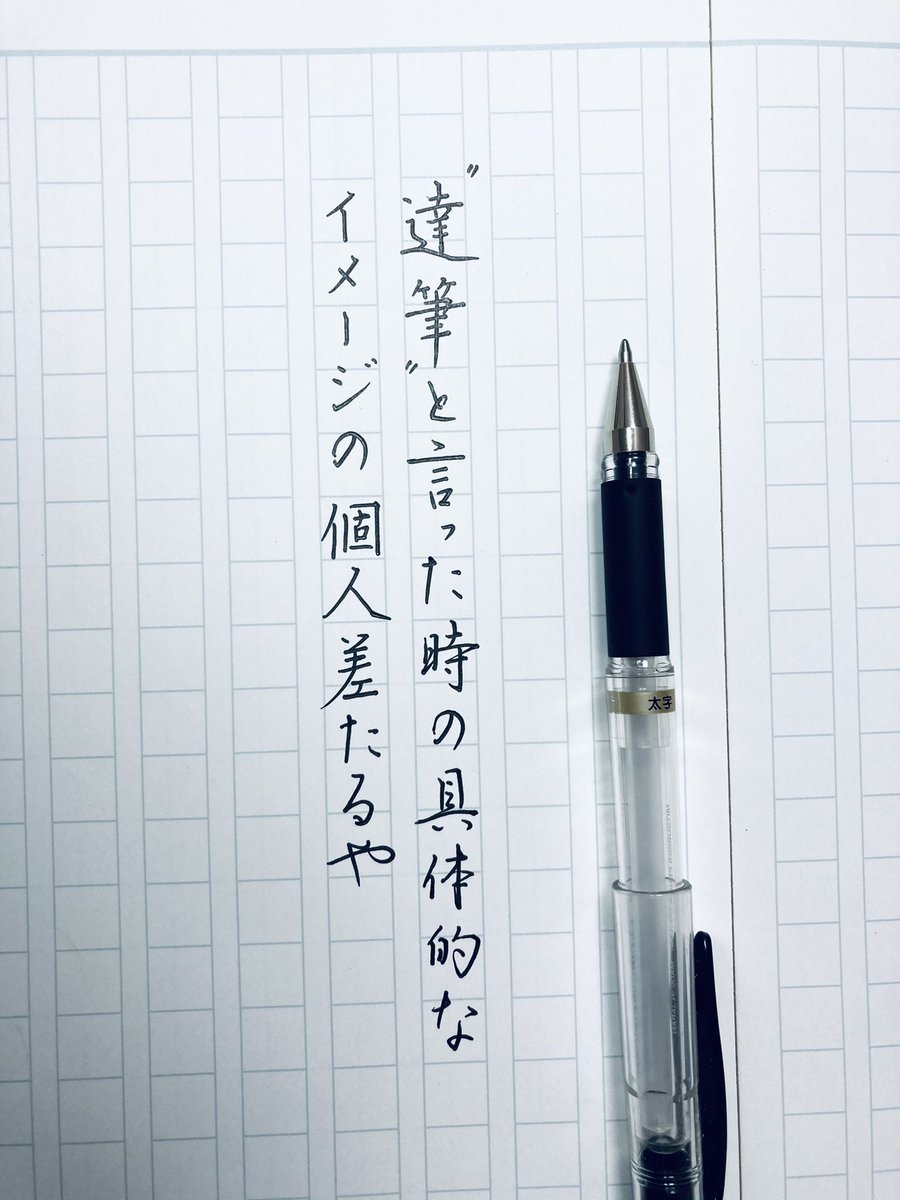 〝達筆〟と言った時の具体的な
イメージの個人差たるや
太字